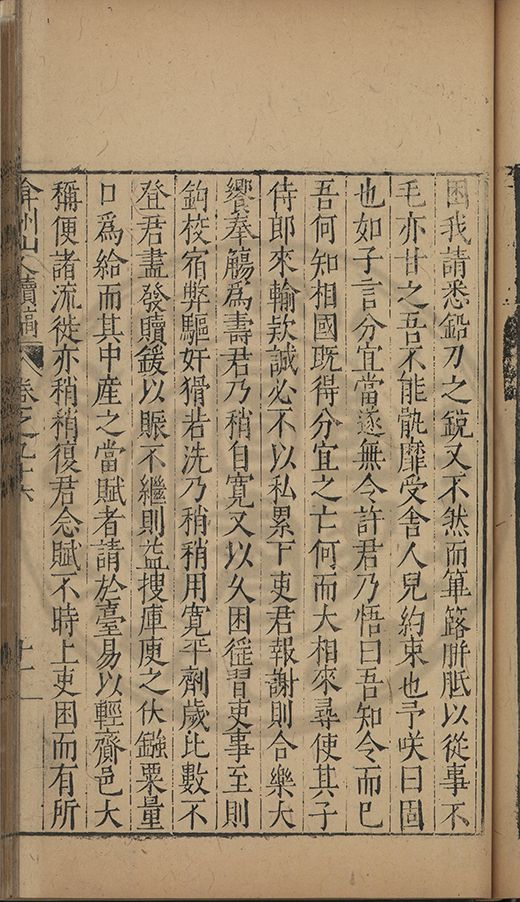 困我請悉鉛刀之銳又不然而箄簬胼胝以從事不
毛亦甘之吾不能骫靡受舎人兒約束也予咲曰固
也如子言分宜當遂無令許君乃悟曰吾知令而已
吾何知相國既得分宜之亡何而大相來尋使其子
侍郎來輸欵誠必不以私累下吏君報謝則合樂大
饗奉觴爲壽君乃稍自寛又以久困徭習吏事至則
鈎校宿弊驅奸猾若洗乃稍稍用寛平劑歲比數不
登君盡發贖鍰以賑不繼則益搜庫庾之伏鏹粟量
口爲給而其中産之當賦者請於臺易以輕齎邑大
稱便諸流徙亦稍稍復君念賦不時上吏困而有所
弇州山人續稿 卷之九十六 十一